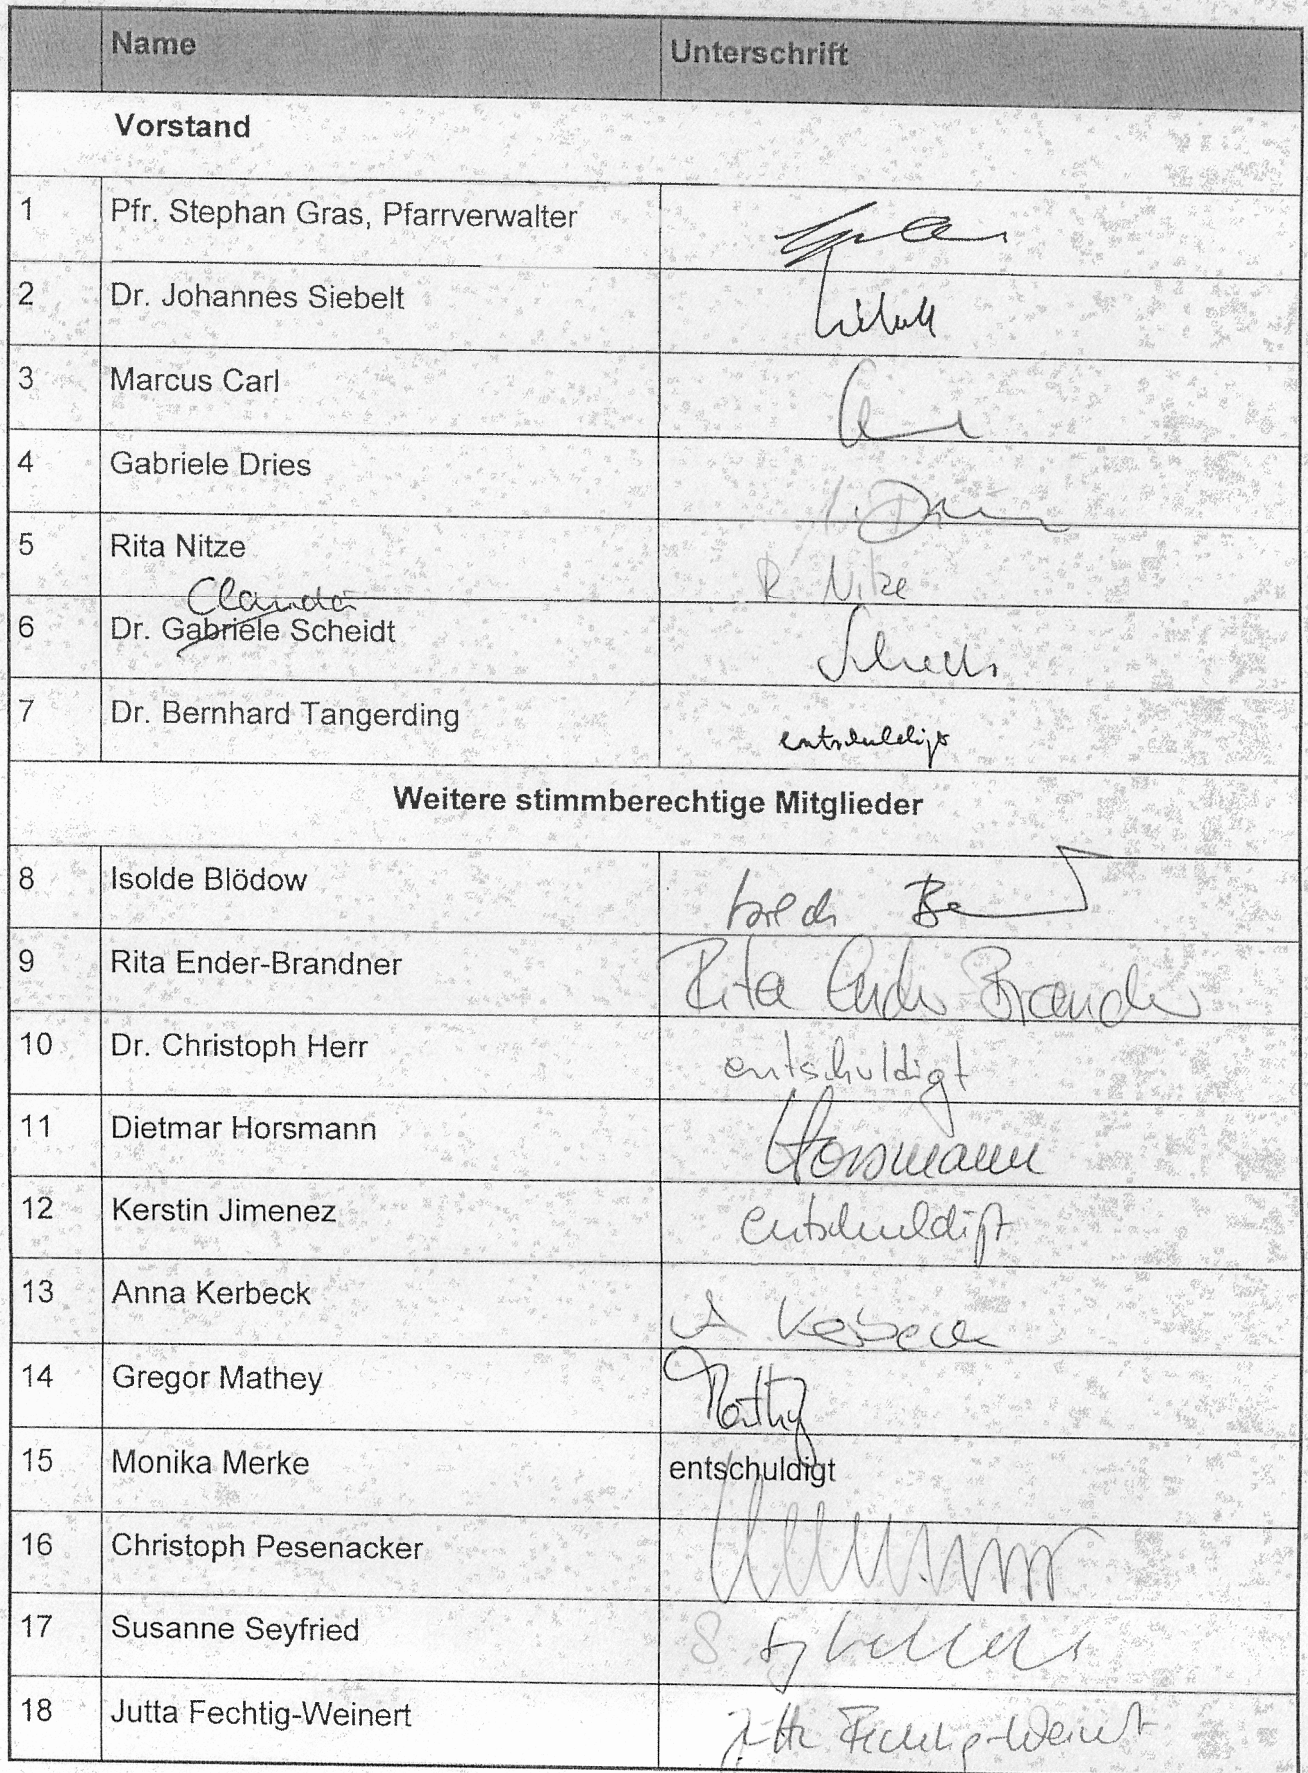 Name Unterschrift
Vorstand
1 Pfr. Stephan Gras, Pfarrverwalter
2 Dr. Johannes Siebelt
3 Marcus Carl
4 Gabriele Dries
5 Rita Nitze R. Nitze
Claudia
6 Dr. Gabriele Scheidt
7 Dr. Bernhard Tangerding entschuldigt
Weitere stimmberechtige Mitglieder
8 Isolde Blödow
9 Rita Ender-Brandner Rita Ender Brandner
10 Dr. Christoph Herr entschuldigt
11 Dietmar Horsmann Horsmann
12 Kerstin Jimenez entschuldigt
13 Anna Kerbeck A Kerbeck
14 Gregor Mathey Mathey
15 Monika Merke entschuldigt
16 Christoph Pesenacker
17 Susanne Seyfried
18 Jutta Fechtig-Weinert Jutta Fechtig-Weinert